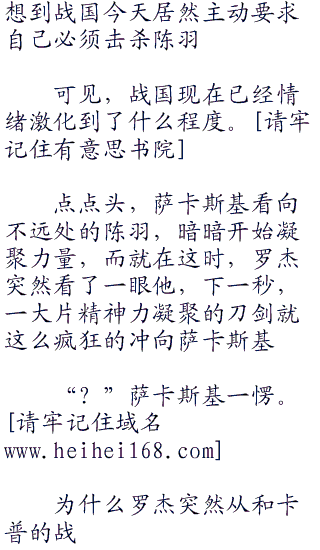 想到战国今天居然主动要求
自己必须击杀陈羽
可见，战国现在已经情
绪激化到了什么程度。[请牢
记住有意思书院]
点点头，萨卡斯基看向
不远处的陈羽，暗暗开始凝
聚力量，而就在这时，罗杰
突然看了一眼他，下一秒，
一大片精神力凝聚的刀剑就
这么疯狂的冲向萨卡斯基
“？”萨卡斯基一愣。
[请牢记住域名
www.heihei168.com]
为什么罗杰突然从和卡
普的战